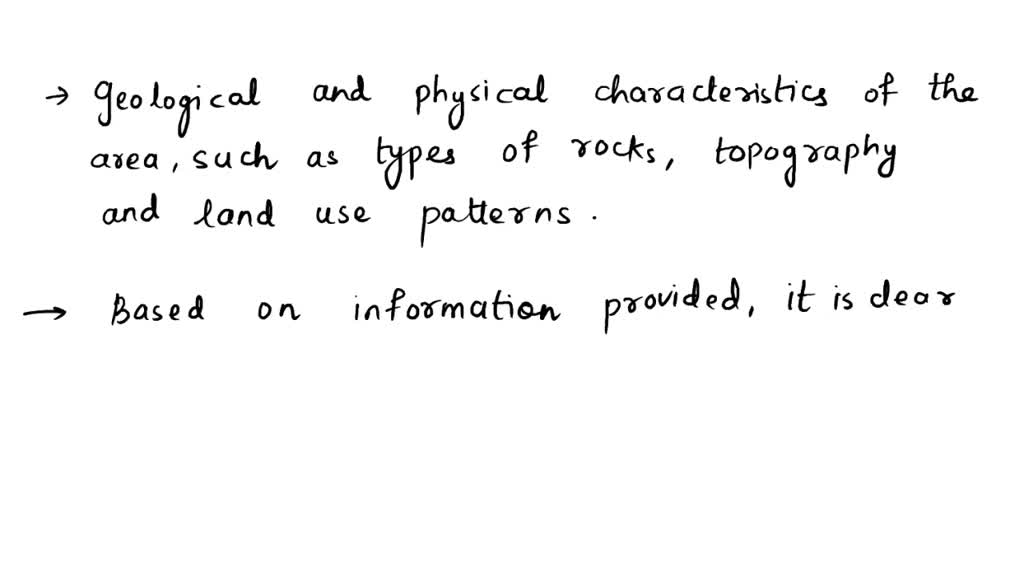 → Geological and physical characteristics of the
area, such as types of rocks, topography
and land use patterns.
→ Based on information provided, it is clear